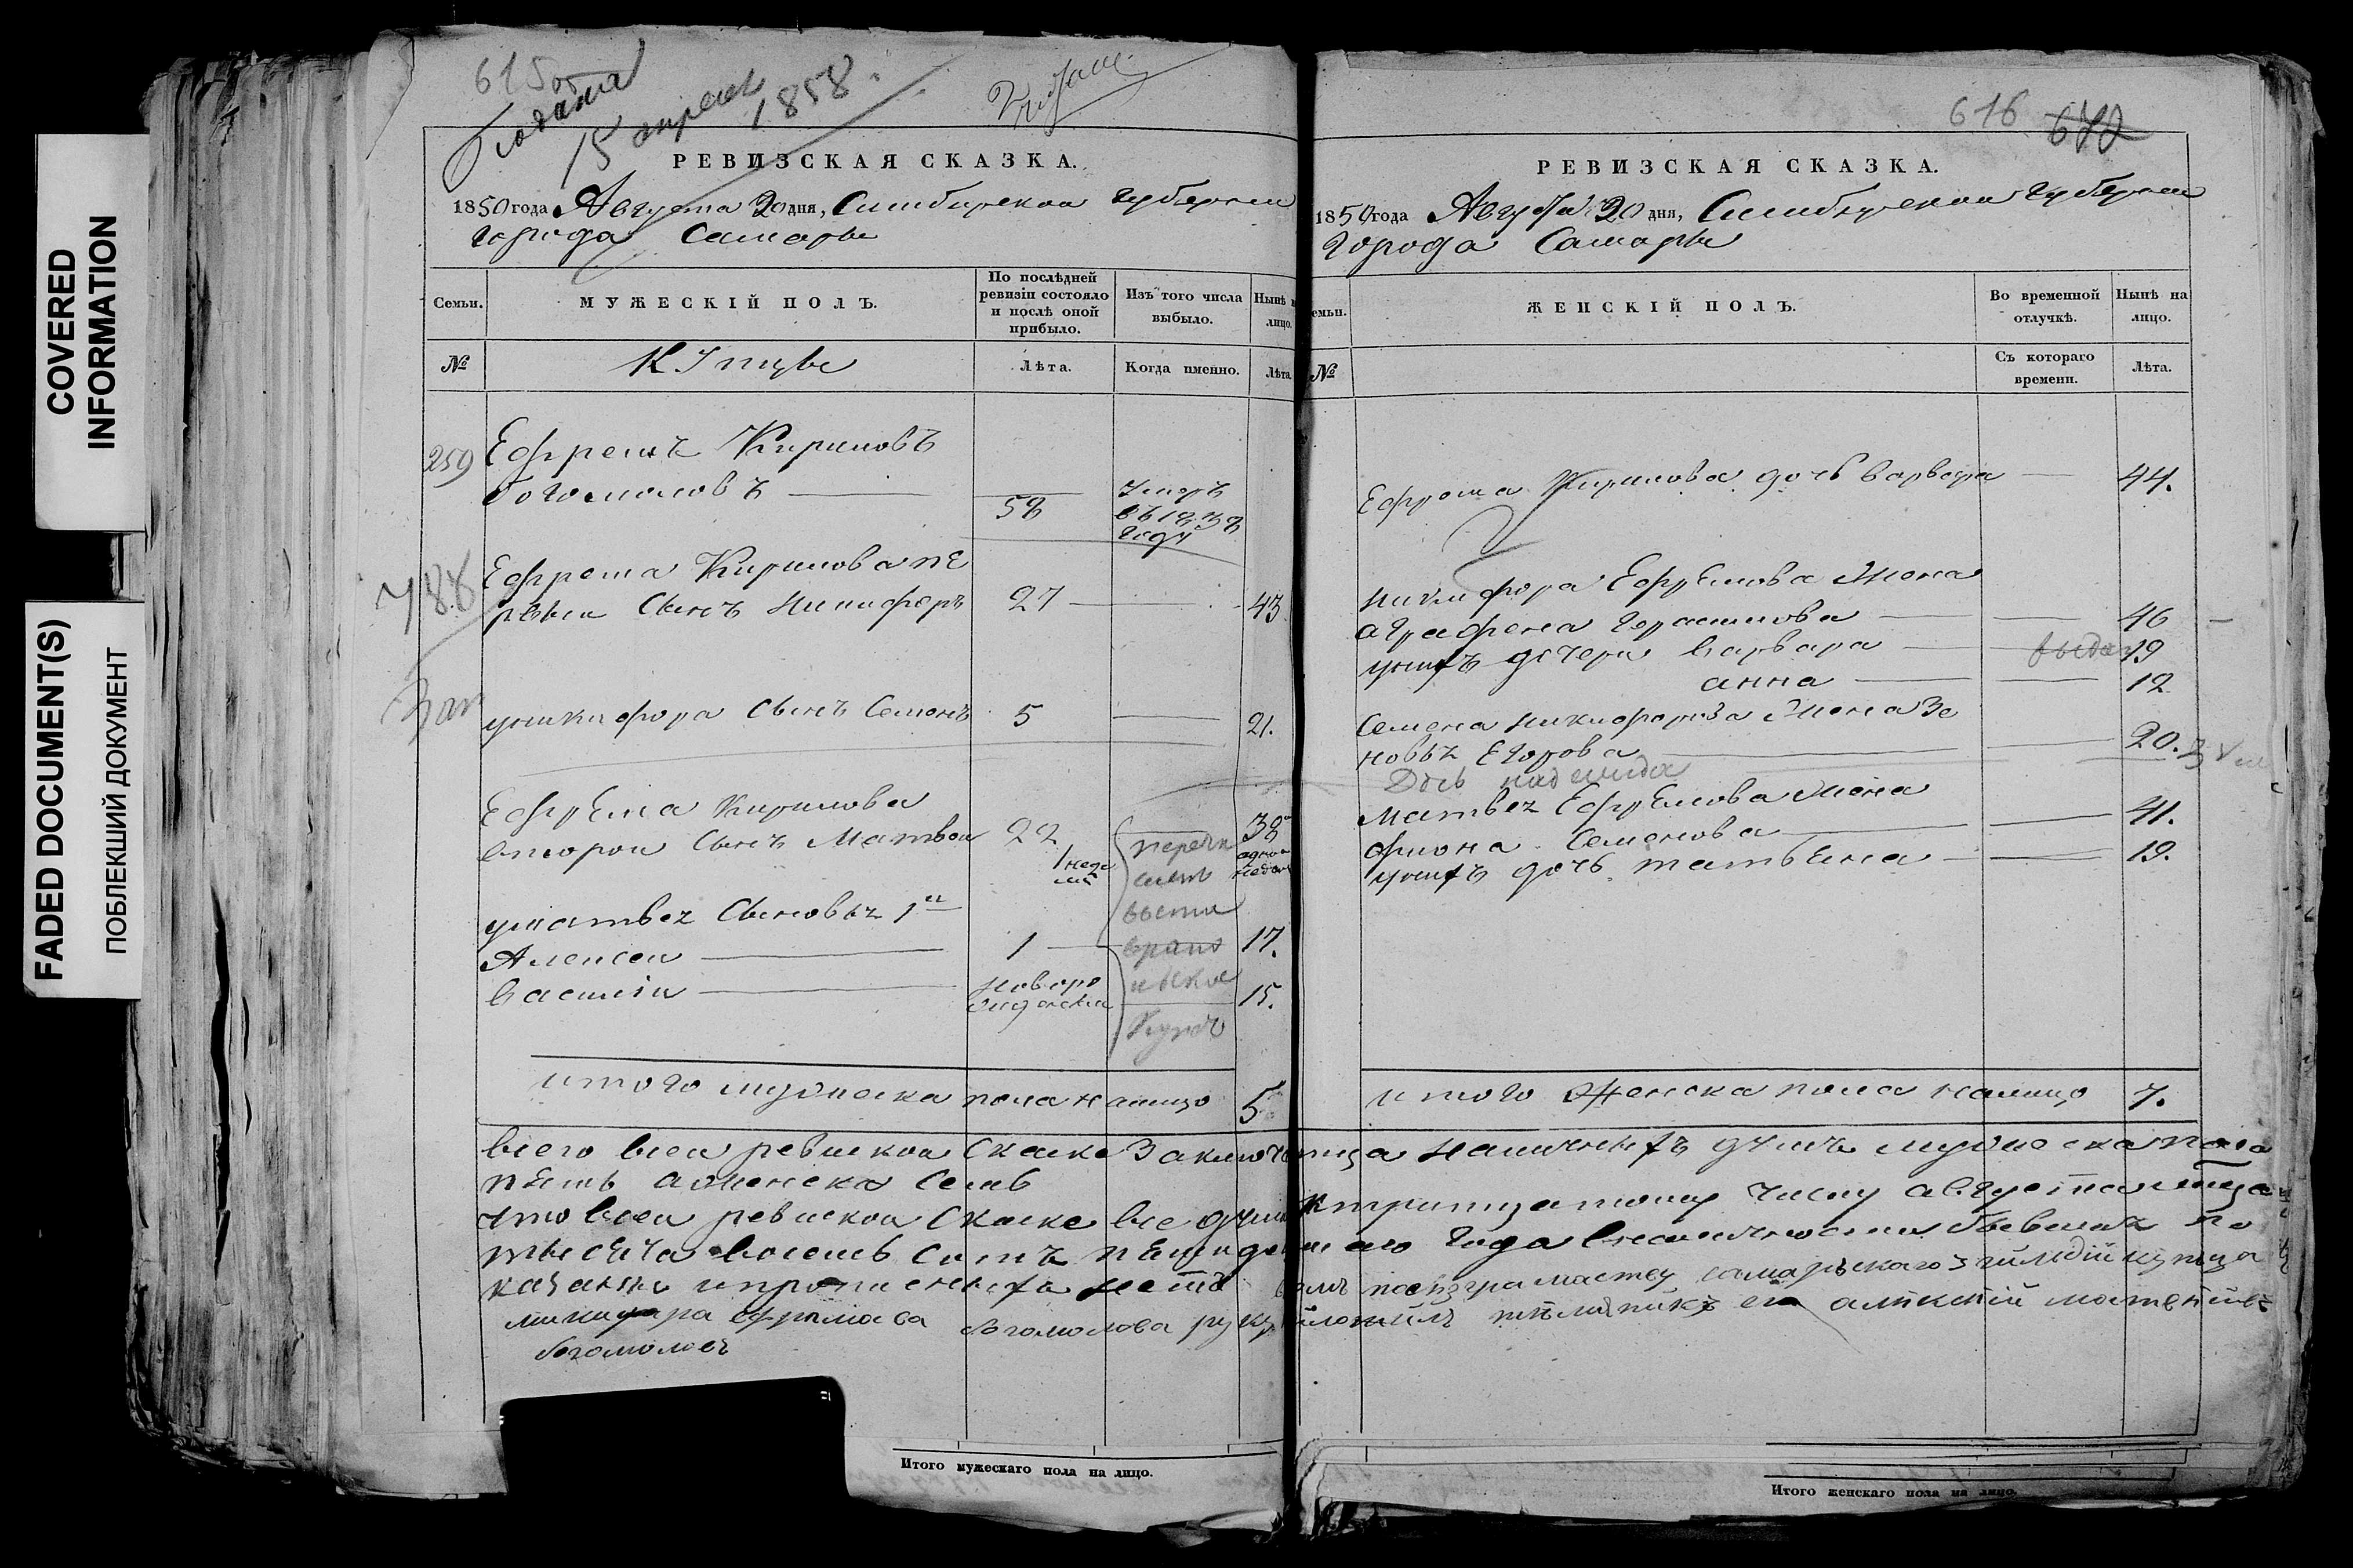 COVERED
INFORMATION
FADED DOCUMENT(S)
ПОБЛЕКШИЙ ДОКУМЕНТ
615об
Подана
15 апреля
1858.
РЕВИЗСКАЯ СКАЗКА.
1850 года Августа 20 дня, Симбирской губернии
города Самары
Семьи.
МУЖЕСКІЙ ПОЛЪ.
По послѣдней
ревизіи состояло
и послѣ оной
прибыло.
Изъ того числа
выбыло.
Нынѣ н
лицо.
№
Купцы
Лѣта.
Когда именно.
Лѣта.
259
Ефремъ Кириловъ
богомоловъ
58
умеръ
въ 1838
году
788
Ефрема Кирилова пе
рвыи Сынъ Никифоръ 27 43
уникифора Сынъ Семенъ 5 21.
Ефрема Кирилова
второи Сынъ Матвеи 22 38
1 неде
ли
одна
недел
уматвея Сыновья 1й
Алексеи 1 17.
василiи новоро
жденои 15.
перечи
слен
итого мужеска пола налицо 5
616 672
РЕВИЗСКАЯ СКАЗКА.
1850 года Августа 20 дня, Симбирской Губернии
Города Самары
емьи.
ЖЕНСКІЙ ПОЛЪ.
Во временной
отлучкѣ.
Нынѣ на
лицо.
№
Съ котораго
времени.
Лѣта.
Ефрема Кирилова дочь варвара 44.
никифора Ефремова Жена
аграфена Герасимова 46
унихъ дочери варвара выдан 19
анна 12
Семена никифорова Жена Зе
новья Егорова 20.
Дочь надежда
матвея Ефремова Жена
фиона Семенова 41.
унихъ дочь татьяна 19.
итого Женска пола налицо 7.
всего всеи ревискои Скаске Заключаетца наличныхъ душъ мужеска пола
пять аженска Семь
что всеи ревискои Скаске все души ктритцатому числу августа
тысяча восемь сотъ пятидесятаго года бывшия по
казаны ипрописныхъ нетъ
никифара ефримова богомолова руку
богомоловъ
Итого мужескаго пола на лицо.
Итого женскаго пола на лицо.